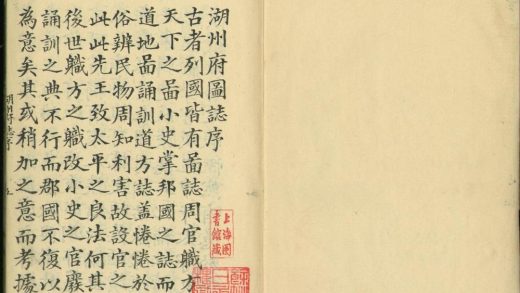 湖州府圖誌序
古者列國皆有啚誌周官職方
天下之啚小史掌邦國之誌而
道地啚誦訓道方誌盖惓惓於
俗辨民物周知利害故設官之
此此先王致太平之良法何其
後世職方之職改小史之官廢
誦訓之典不行而郡國不復以
為意矣其或稍加之意而考據
上海圖
書館藏